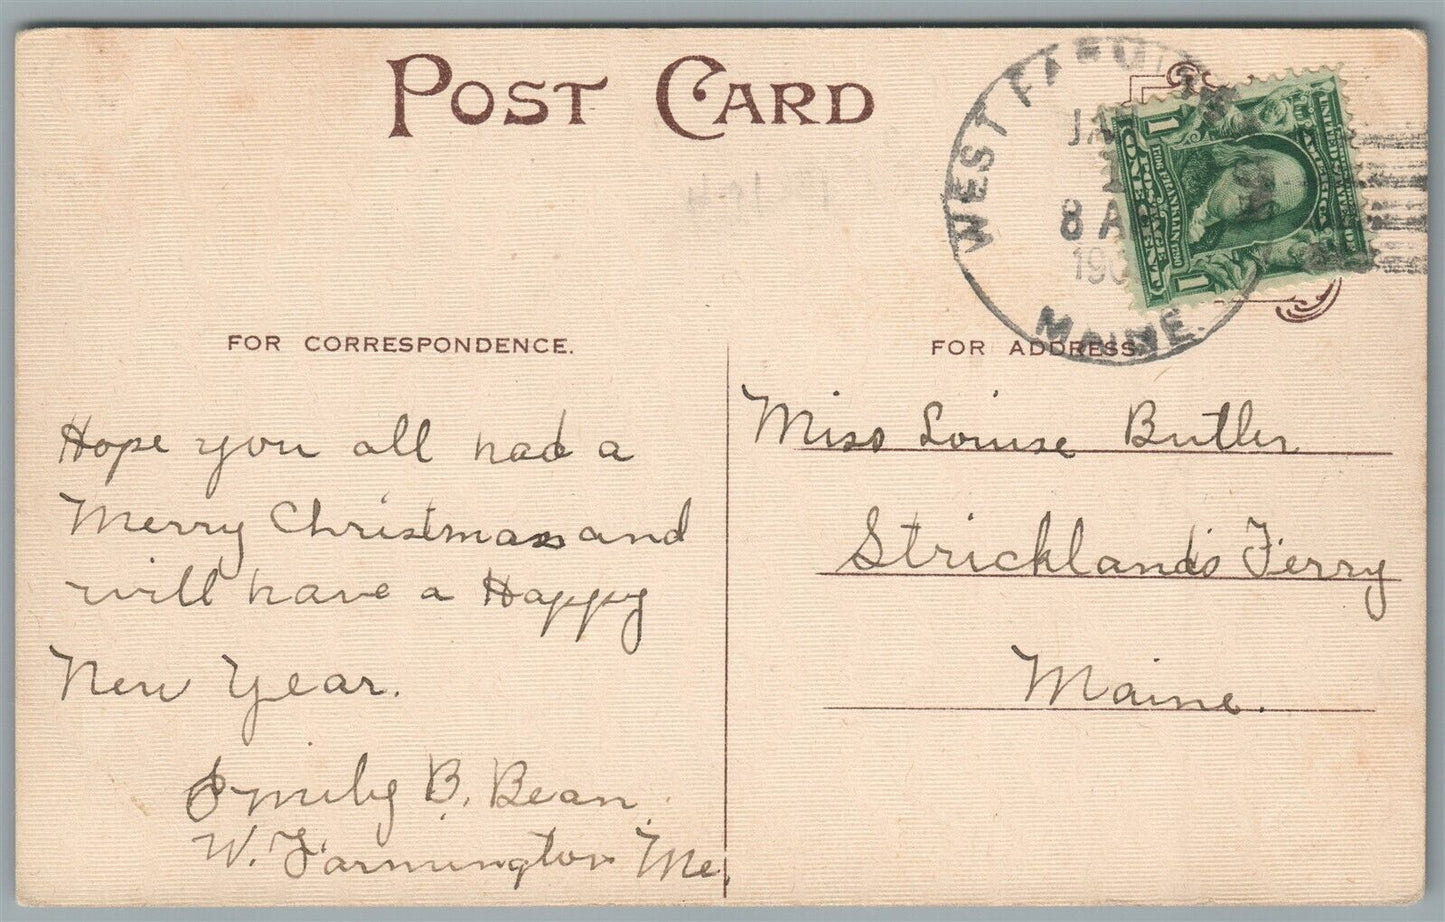 POST CARD
WEST FARMINGTON
JA
8 A
190
MAINE.
1 1
FOR CORRESPONDENCE.
FOR ADDRESS.
Hope you all had a
Merry Christmas and
will have a Happy
New Year.
Emily B. Bean.
W. Farmington Me.
Miss Louise Butler
Strickland's Ferry
Maine.